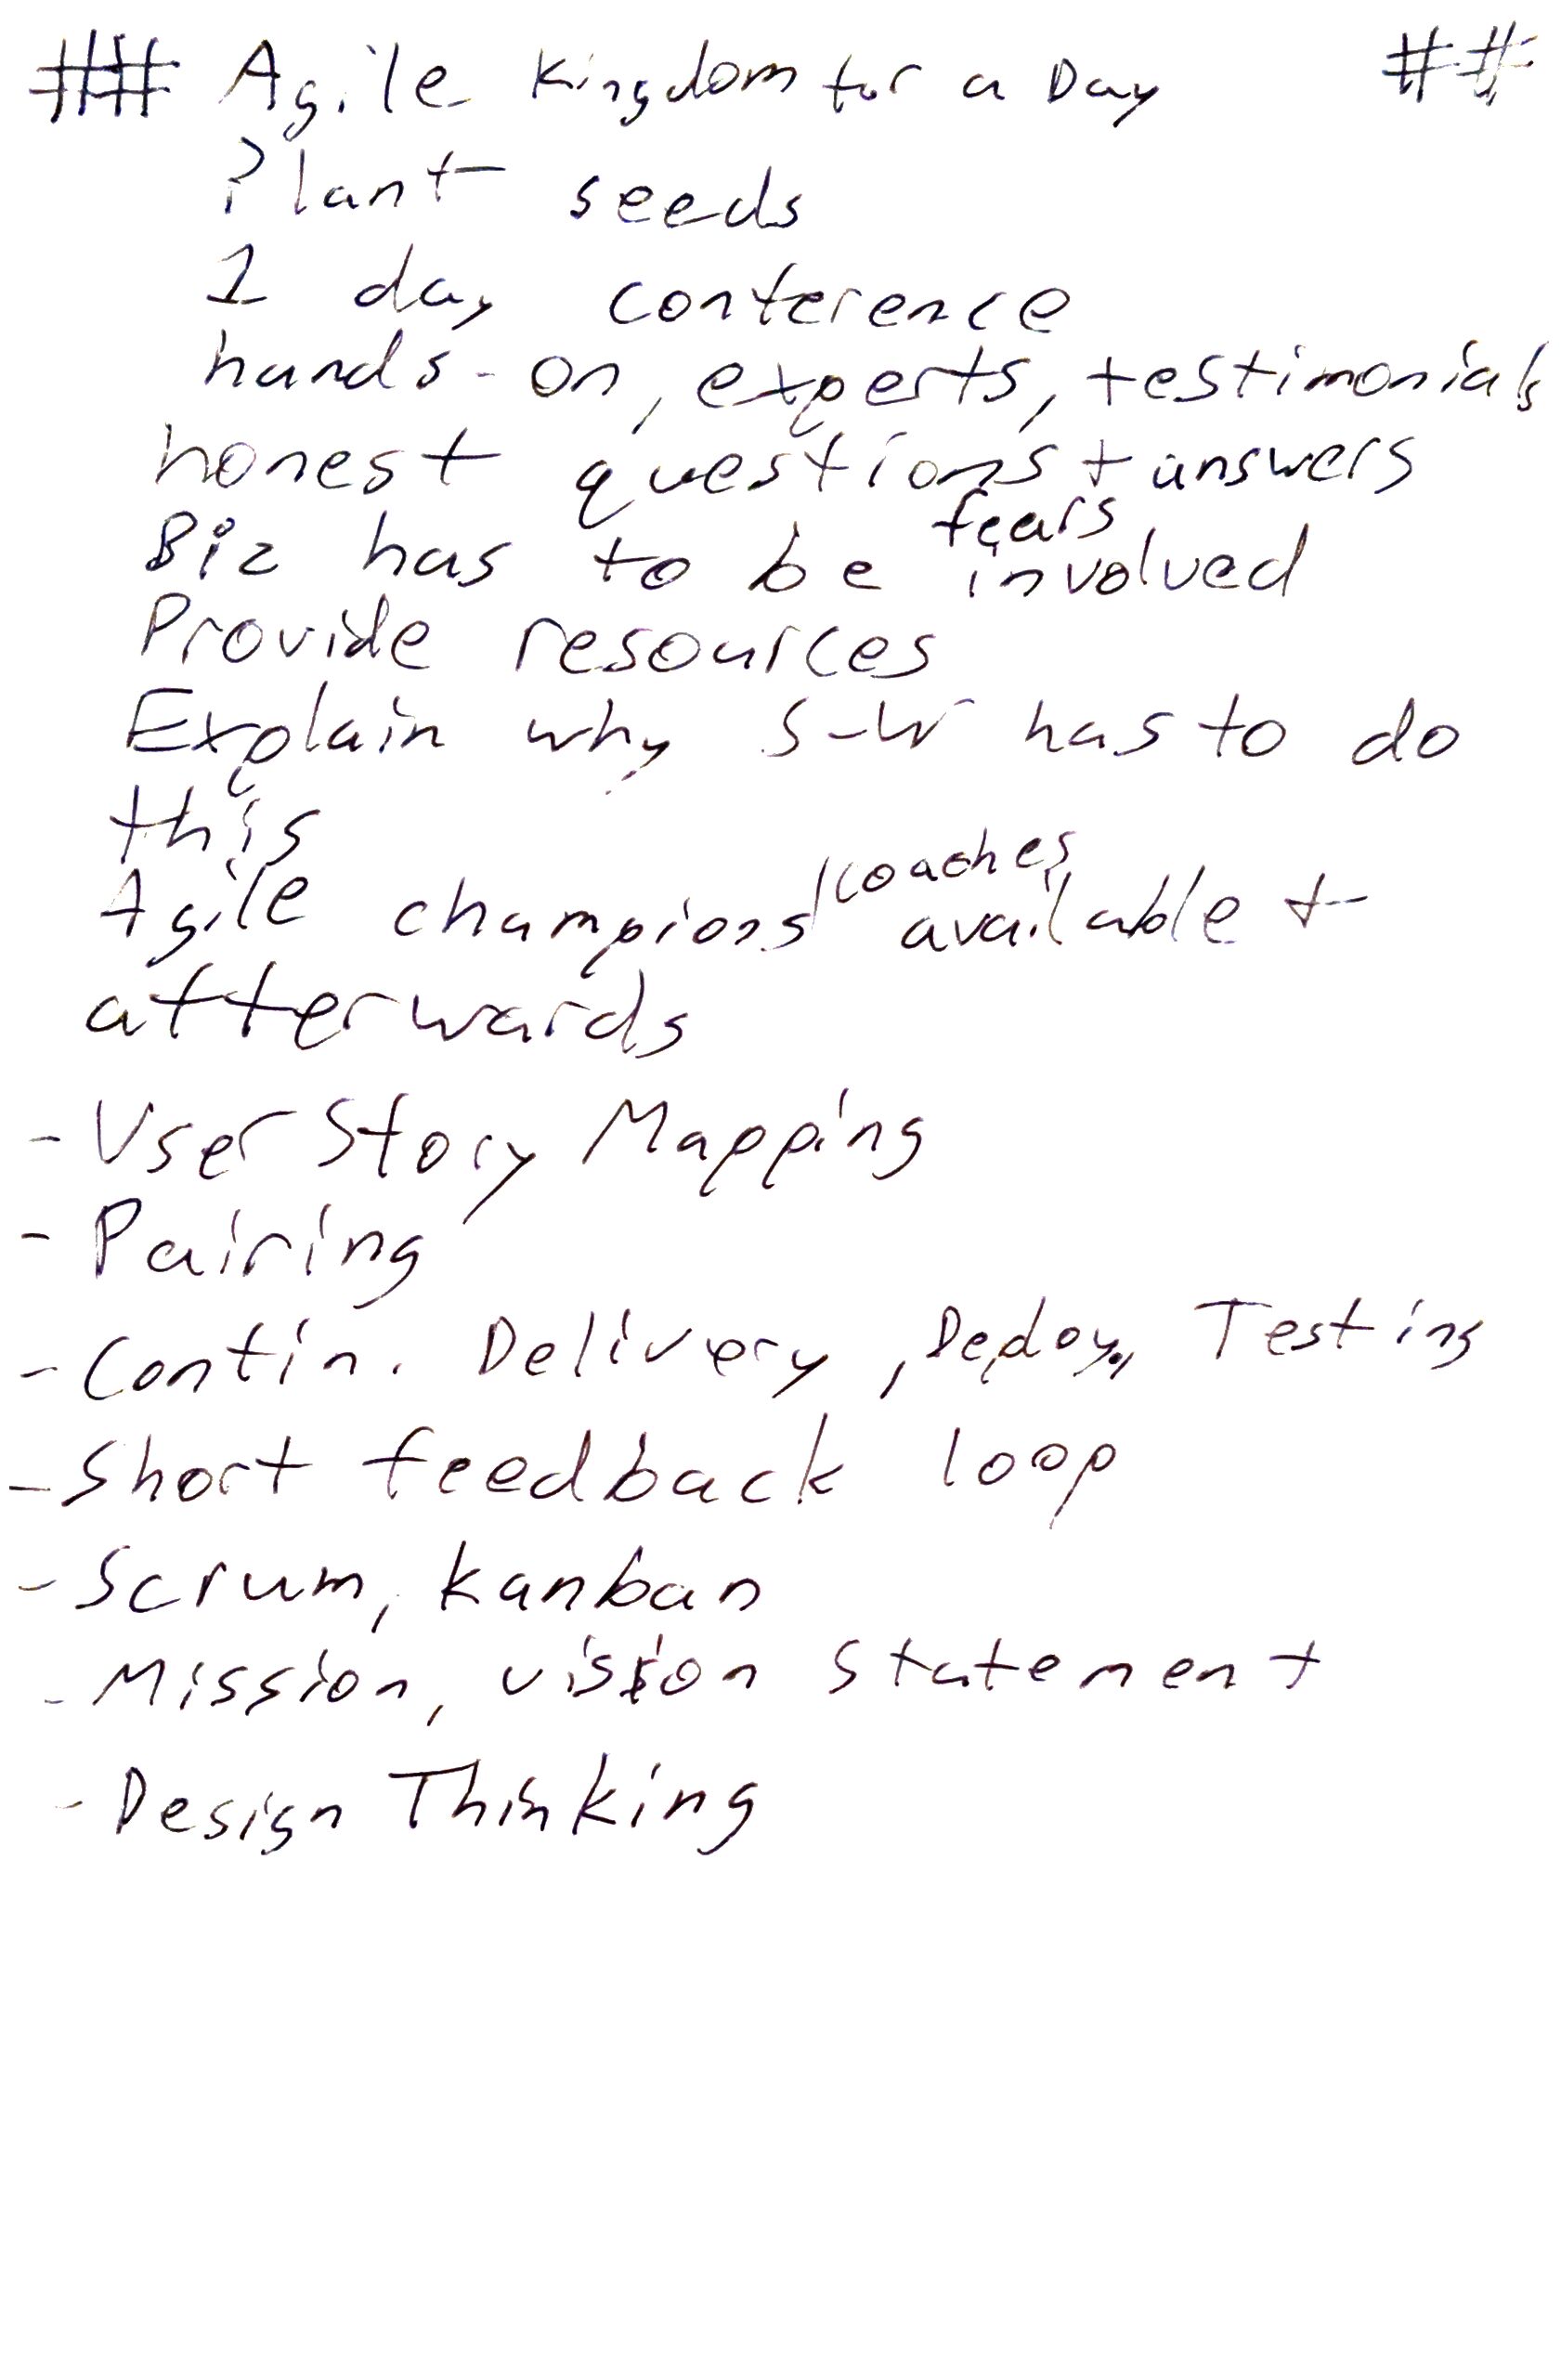 ## Agile Kingdom for a Day ##
Plant seeds
1 day conference
hands-on, experts, testimonials
honest questions + answers
fears
Biz has to be involved
Provide resources
Explain why S-W has to do
this
Agile champions/coaches available +
afterwards
- User Story Mapping
- Pairing
- Contin. Delivery, Deploy, Testing
- Short feedback loop
- Scrum, Kanban
- Mission, vision statement
- Design Thinking